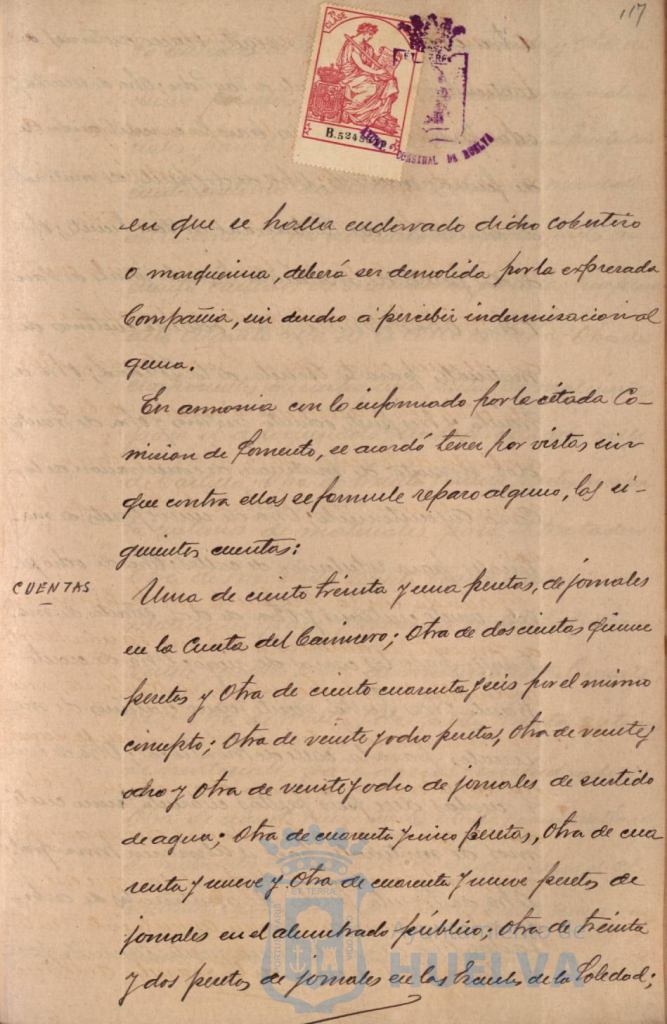 117
7ª CLASE
B.5248
DE HUELVA
en que se halla enclavado dicho cobertizo
o marquesina, deberá ser demolida por la expresada
Compañia, sin derecho a percibir indemnizacion al
guna.
En armonia con lo informado por la citada Co-
mision de Fomento, se acordó tener por vistas sin
que contra ellas se formule reparo alguno, las si-
guientes cuentas:
CUENTAS
Una de ciento treinta y una pesetas, de jornales
en la Cuesta del Carnicero; otra de doscientas quince
pesetas y otra de ciento cuarenta y seis por el mismo
concepto; otra de veinte y ocho pesetas, otra de veinte y
ocho y otra de veinte y ocho de jornales de surtido
de agua; otra de cuarenta y cinco pesetas, otra de cua
renta y nueve y otra de cuarenta y nueve pesetas de
jornales en el alumbrado público; otra de treinta
y dos pesetas de jornales en las Escuelas de la Soledad;
Ayuntamiento de
HUELVA